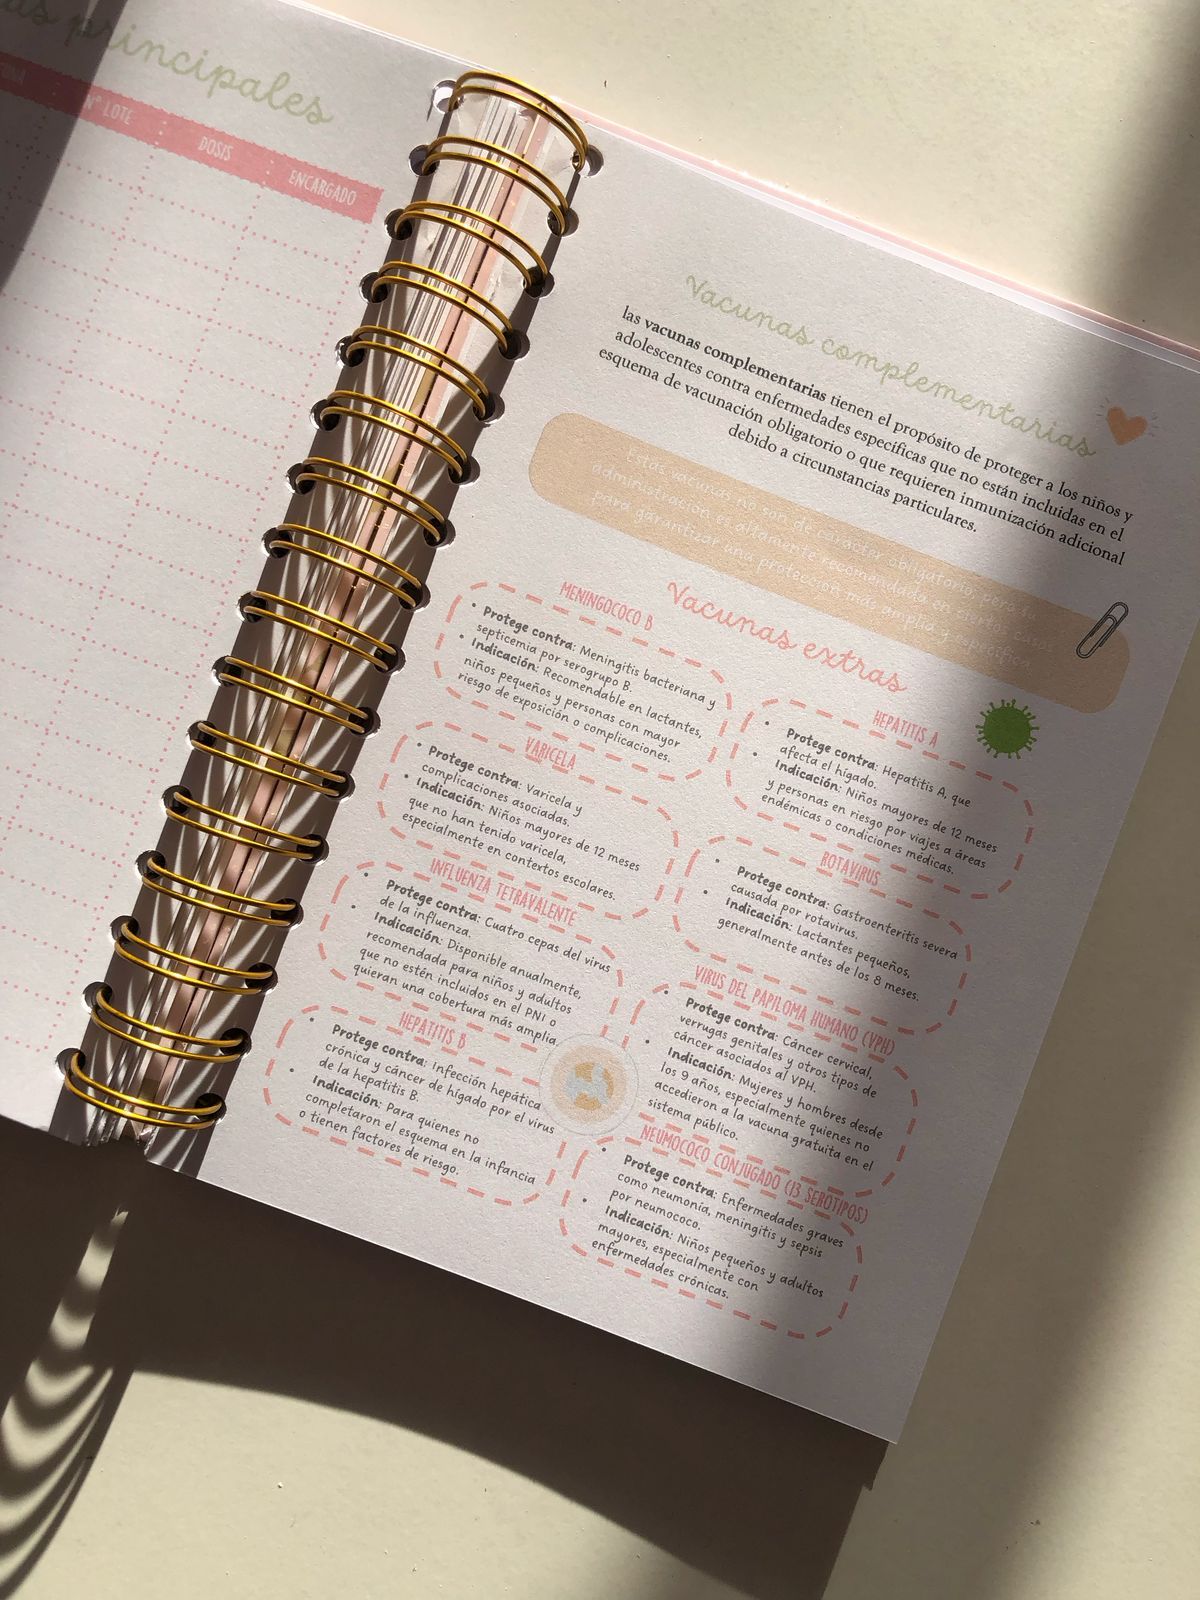 principales
N° LOTE
DOSIS
ENCARGADO
Vacunas complementarias
las vacunas complementarias tienen el propósito de proteger a los niños y
adolescentes contra enfermedades específicas que no están incluidas en el
esquema de vacunación obligatorio o que requieren inmunización adicional
debido a circunstancias particulares.
Estas vacunas no son de carácter obligatorio, pero su
administración es altamente recomendada en ciertos casos
para garantizar una protección más amplia
Vacunas extras
MENINGOCOCO B
• Protege contra: Meningitis bacteriana y
septicemia por serogrupo B.
• Indicación: Recomendable en lactantes,
niños pequeños y personas con mayor
riesgo de exposición o complicaciones.
VARICELA
• Protege contra: Varicela y
complicaciones asociadas.
• Indicación: Niños mayores de 12 meses
que no han tenido varicela,
especialmente en contextos escolares.
INFLUENZA TETRAVALENTE
• Protege contra: Cuatro cepas del virus
de la influenza.
• Indicación: Disponible anualmente,
recomendada para niños y adultos
que no estén incluidos en el PNI o
quieran una cobertura más amplia.
HEPATITIS B
• Protege contra: Infección hepática
crónica y cáncer de hígado por el virus
de la hepatitis B.
• Indicación: Para quienes no
completaron el esquema en la infancia
o tienen factores de riesgo.
HEPATITIS A
• Protege contra: Hepatitis A, que
afecta el hígado.
• Indicación: Niños mayores de 12 meses
y personas en riesgo por viajes a áreas
endémicas o condiciones médicas.
ROTAVIRUS
• Protege contra: Gastroenteritis severa
causada por rotavirus.
• Indicación: Lactantes pequeños,
generalmente antes de los 8 meses.
VIRUS DEL PAPILOMA HUMANO (VPH)
• Protege contra: Cáncer cervical,
verrugas genitales y otros tipos de
cáncer asociados al VPH.
• Indicación: Mujeres y hombres desde
los 9 años, especialmente quienes no
accedieron a la vacuna gratuita en el
sistema público.
NEUMOCOCO CONJUGADO (13 SEROTIPOS)
• Protege contra: Enfermedades graves
como neumonía, meningitis y sepsis
por neumococo.
• Indicación: Niños pequeños y adultos
mayores, especialmente con
enfermedades crónicas.